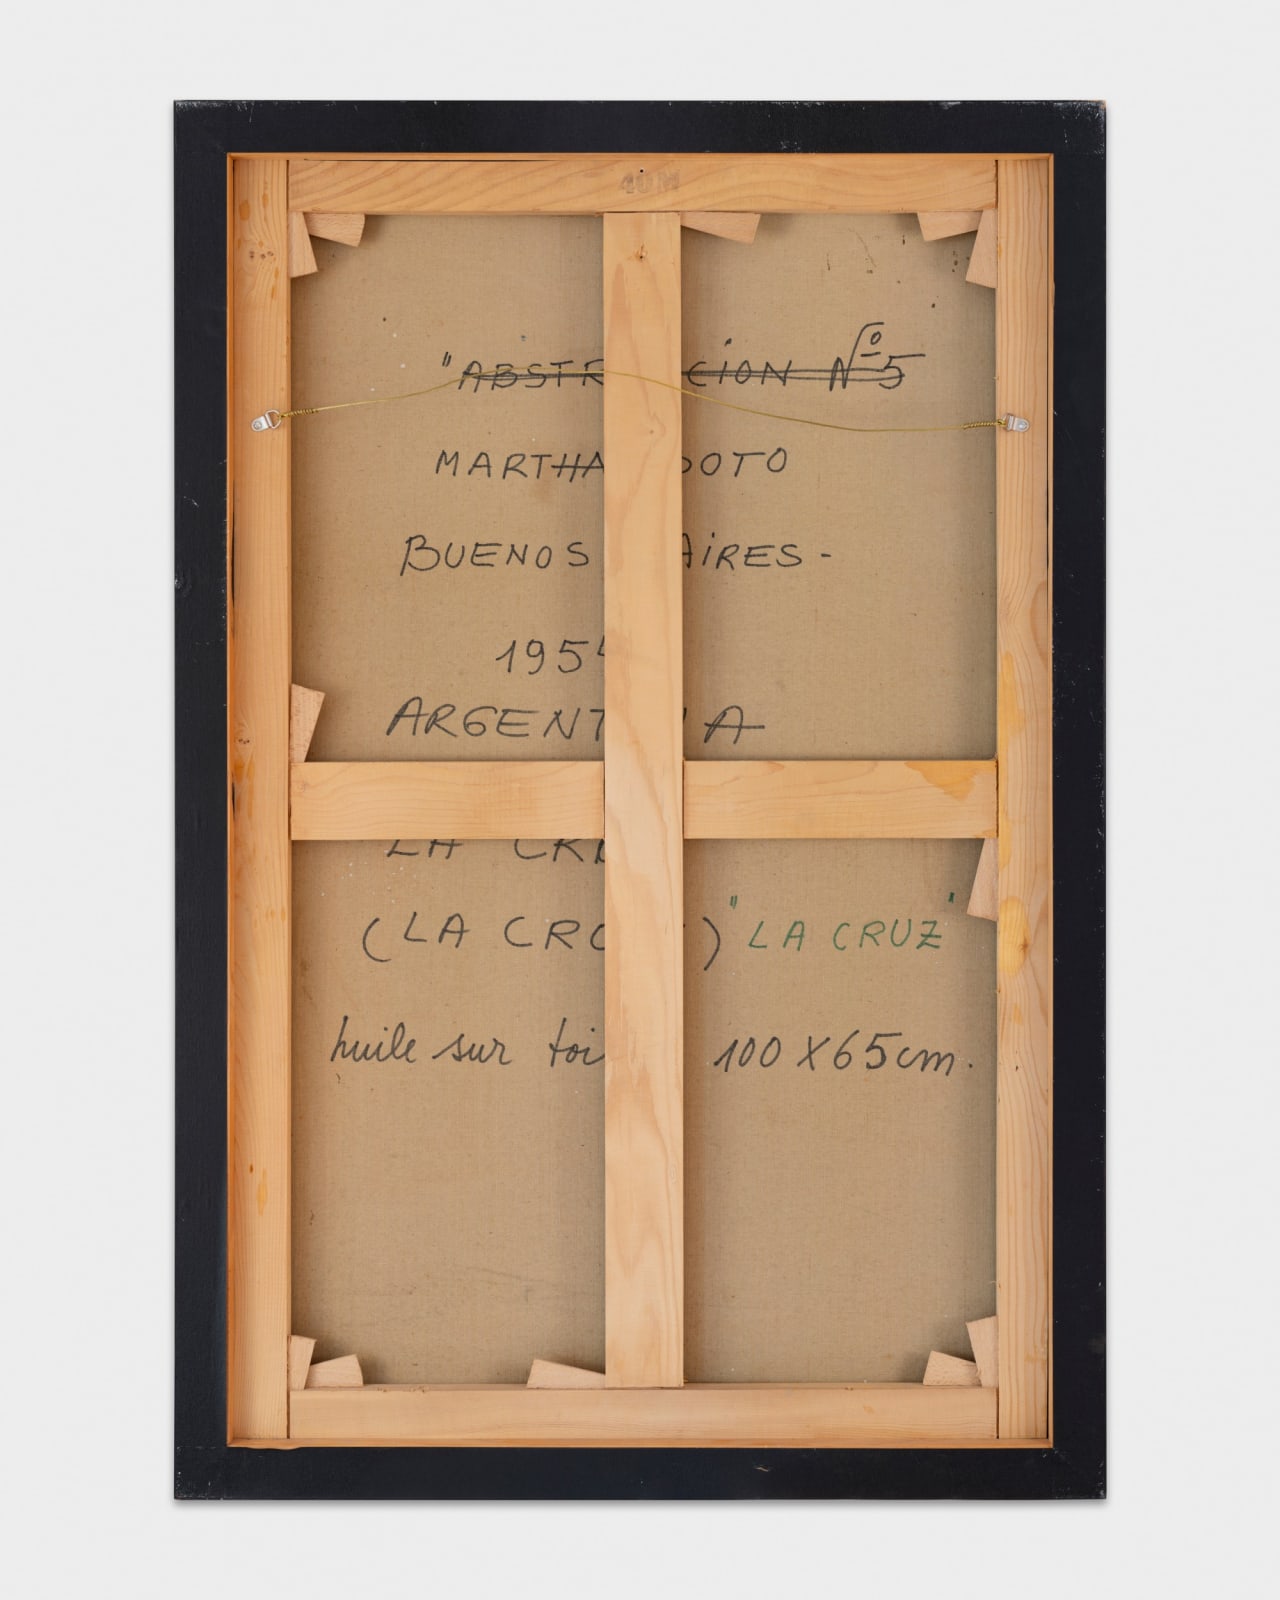 40M
"ABSTR CION Nº5
MARTHA OTO
BUENOS AIRES-
195
ARGENT A
LA CR
(LA CRO ) "LA CRUZ"
huile sur toi 100 X 65cm.